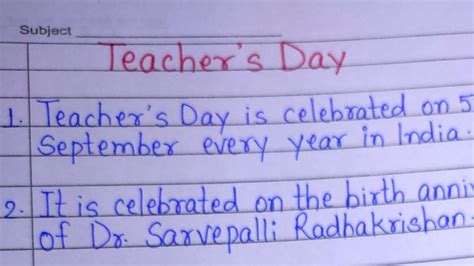 Subject
Teacher's Day
1. Teacher's Day is celebrated on 5
September every year in India.
2. It is celebrated on the birth anni
of Dr. Sarvepalli Radhakrishan.